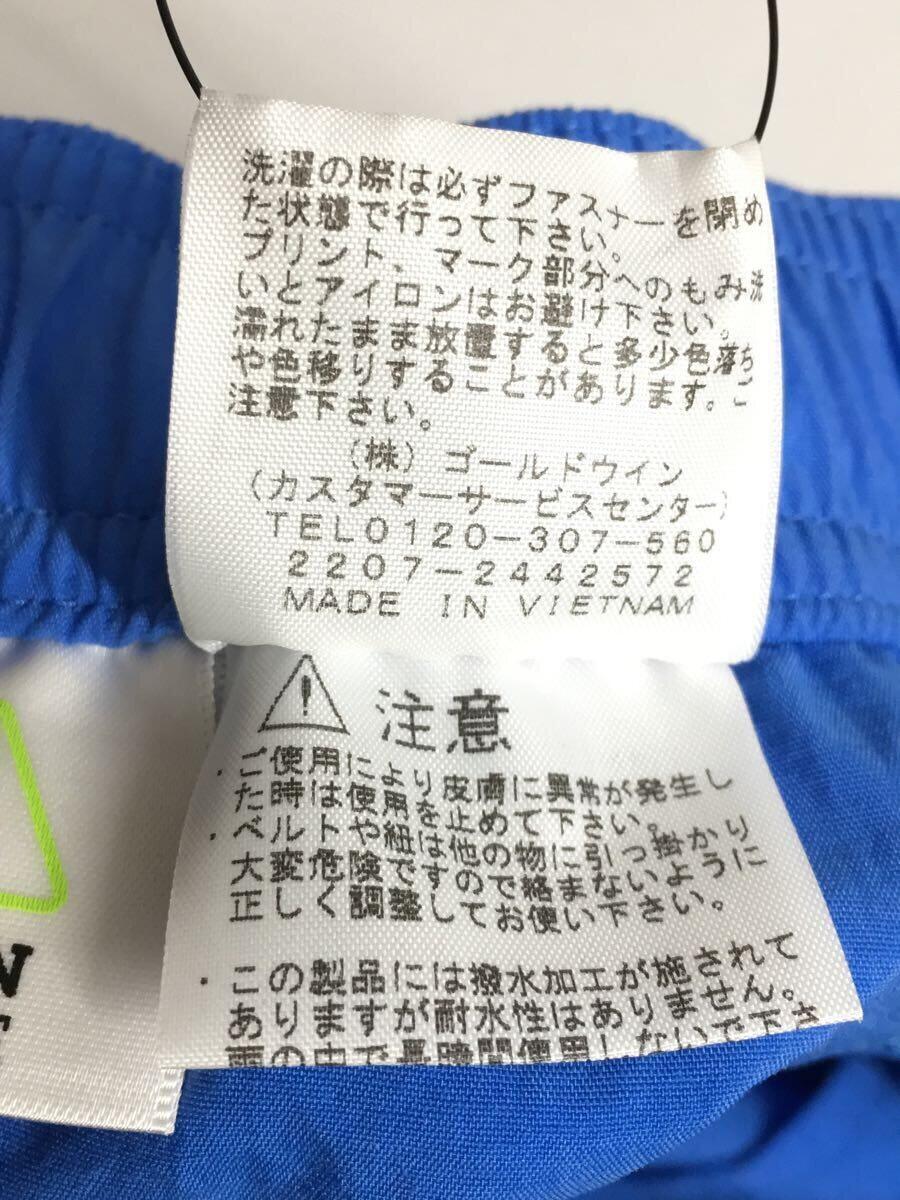 洗濯の際は必ずファスナーを閉め
た状態で行って下さい。
プリント、マーク部分へのもみ洗
いとアイロンはお避け下さい。
濡れたまま放置すると多少色落ち
や色移りすることがあります。ご
注意下さい。
(株) ゴールドウイン
(カスタマーサービスセンター)
TEL0120-307-560
2207-2442572
MADE IN VIETNAM
注意
・ご使用により皮膚に異常が発生し
た時は使用を止めて下さい。
・ベルトや紐は他の物に引っ掛かり
大変危険ですので絡まないように
正しく調整してお使い下さい。
・この製品には撥水加工が施されて
ありますが耐水性はありません。
雨の中で長時間使用しないで下さ
N